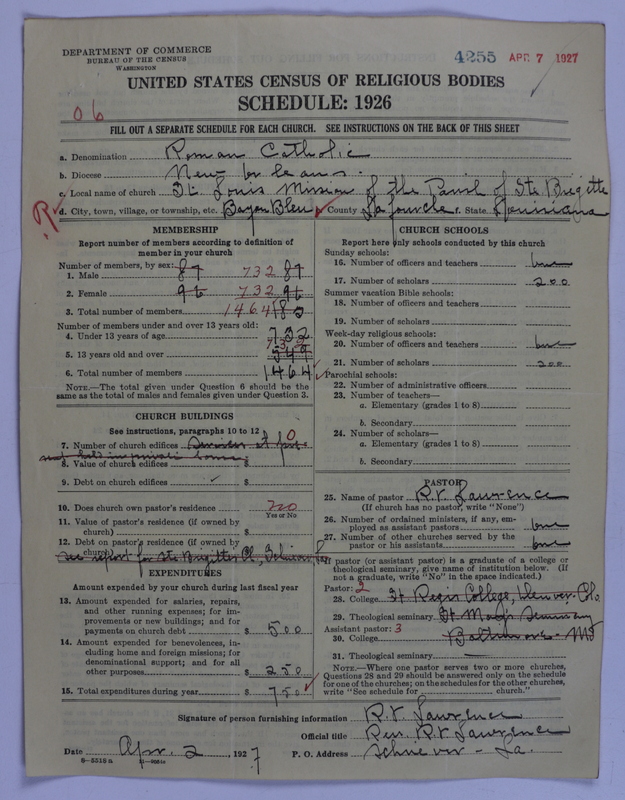 DEPARTMENT OF COMMERCE
BUREAU OF THE CENSUS
WASHINGTON
4255 APR 7 1927
UNITED STATES CENSUS OF RELIGIOUS BODIES
SCHEDULE: 1926
06
FILL OUT A SEPARATE SCHEDULE FOR EACH CHURCH. SEE INSTRUCTIONS ON THE BACK OF THIS SHEET
a. Denomination Roman Catholic
b. Diocese New Orleans.
c. Local name of church St. Louis Mission of the Parish of Ste Brigitte
R
d. City, town, village, or township, etc. Bayou Bleu County Lafourche f. State. Louisiana
MEMBERSHIP
Report number of members according to definition of member in your church
Number of members, by sex:
1. Male 732
2. Female 732
3. Total number of members 1464
Number of members under and over 13 years old:
4. Under 13 years of age 732
5. 13 years old and over 732
6. Total number of members 1464
NOTE.—The total given under Question 6 should be the
same as the total of males and females given under Question 3.
CHURCH BUILDINGS
See instructions, paragraphs 10 to 12
7. Number of church edifices 0
8. Value of church edifices $
9. Debt on church edifices $
10. Does church own pastor's residence no
Yes or No
11. Value of pastor's residence (if owned by
church) $
12. Debt on pastor's residence (if owned by
church)
see report for Ste Brigitte
EXPENDITURES
Amount expended by your church during last fiscal year
13. Amount expended for salaries, repairs,
and other running expenses; for im-
provements or new buildings; and for
payments on church debt $ 500
14. Amount expended for benevolences, in-
cluding home and foreign missions; for
denominational support; and for all
other purposes $ 250
15. Total expenditures during year $ 750
CHURCH SCHOOLS
Report here only schools conducted by this church
Sunday schools:
16. Number of officers and teachers one
17. Number of scholars 200
Summer vacation Bible schools:
18. Number of officers and teachers
19. Number of scholars
Week-day religious schools:
20. Number of officers and teachers one
21. Number of scholars 200
Parochial schools:
22. Number of administrative officers
23. Number of teachers—
a. Elementary (grades 1 to 8)
b. Secondary
24. Number of scholars—
a. Elementary (grades 1 to 8)
b. Secondary
PASTOR
25. Name of pastor R.V. Lawrence
(If church has no pastor, write "None")
26. Number of ordained ministers, if any, em-
ployed as assistant pastors one
27. Number of other churches served by the
pastor or his assistants one
If pastor (or assistant pastor) is a graduate of a college or
theological seminary, give name of institution below. (If
not a graduate, write "No" in the space indicated.)
Pastor: 2
28. College St Regis College, Denver, Col.
29. Theological seminary St Mary's Seminary
Assistant pastor: 3
30. College Baltimore - Md
31. Theological seminary
NOTE.—Where one pastor serves two or more churches,
Questions 28 and 29 should be answered only on the schedule
for one of the churches; on the schedules for the other churches,
write "See schedule for church."
Signature of person furnishing information R.V. Lawrence
Official title Rev. R.V. Lawrence
Date Apr. 2, 1927 P. O. Address Schriever - La.
8-5518a